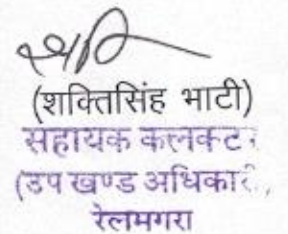 (शक्तिसिंह भाटी)
सहायक कलक्टर
(उप खण्ड अधिकारी,
रेलमगरा